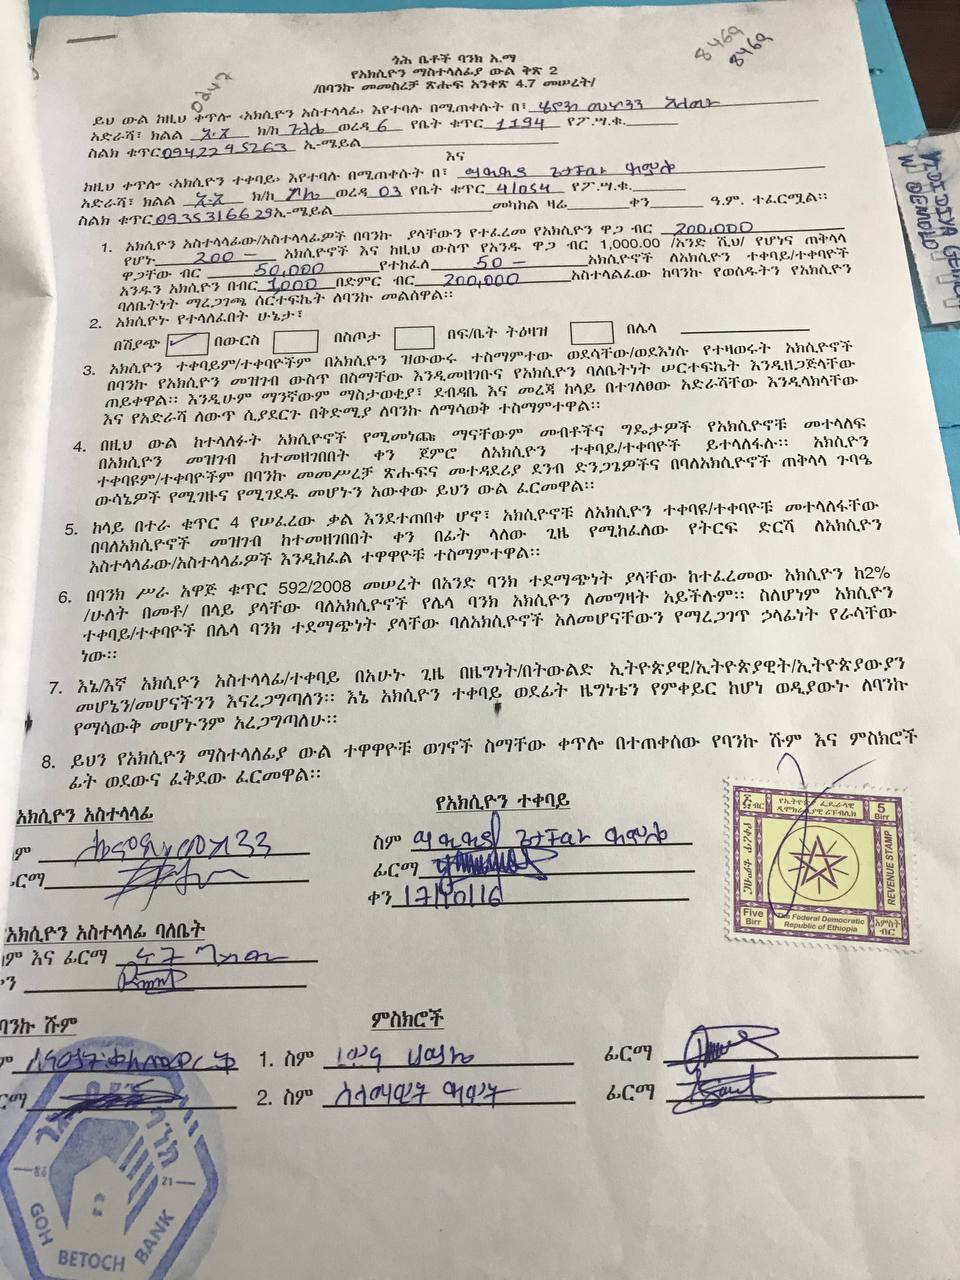 8469
8469
ጎሕ ቤቶች ባንክ አ.ማ
የአክሲዮን ማስተላለፊያ ውል ቅጽ 2
/በባንኩ መመስረቻ ጽሑፍ አንቀጽ 4.7 መሠረት/
ይህ ውል ከዚህ ቀጥሎ ‹አክሲዮን አስተላላፊ› እየተባሉ በሚጠቀሱት በ፣
አድራሻ፣ ክልል አ.አ ክ/ከ ጉለሌ ወረዳ 6 የቤት ቁጥር 1194 የፖ.ሣ.ቁ.
ስልክ ቁጥር 0942295263 ኢ-ሜይል
እና
ከዚህ ቀጥሎ ‹አክሲዮን ተቀባይ› እየተባሉ በሚጠቀሱት በ፣
አድራሻ፣ ክልል አ.አ ክ/ከ ወረዳ 03 የቤት ቁጥር 4/054 የፖ.ሣ.ቁ.
ስልክ ቁጥር 0935316629 ኢ-ሜይል መካከል ዛሬ ቀን ዓ.ም. ተፈርሟል፡፡
1. አክሲዮን አስተላላፊው/አስተላላፊዎች በባንኩ ያላቸውን የተፈረመ የአክሲዮን ዋጋ ብር 200,000
የሆኑ 200 – አክሲዮኖች እና ከዚህ ውስጥ የአንዱ ዋጋ ብር 1,000.00 /አንድ ሺህ/ የሆነና ጠቅላላ
ዋጋቸው ብር 50,000 የተከፈለ 50 – አክሲዮኖች ለአክሲዮን ተቀባይ/ተቀባዮች
አንዱን አክሲዮን በብር 1,000 በድምር ብር 200,000 አስተላልፈው ከባንኩ የወሰዱትን የአክሲዮን
ባለቤትነት ማረጋገጫ ሰርተፍኬት ለባንኩ መልሰዋል፡፡
2. አክሲዮኑ የተላለፈበት ሁኔታ፣
በሽያጭ ✓ በውርስ በስጦታ በፍ/ቤት ትዕዛዝ በሌላ
3. አክሲዮን ተቀባይም/ተቀባዮችም በአክሲዮን ዝውውሩ ተስማምተው ወደሳቸው/ወደእነሱ የተዛወሩት አክሲዮኖች
በባንኩ የአክሲዮን መዝገብ ውስጥ በስማቸው እንዲመዘገቡና የአክሲዮን ባለቤትነት ሠርተፍኬት እንዲዘጋጅላቸው
ጠይቀዋል፡፡ እንዲሁም ማንኛውም ማስታወቂያ፣ ደብዳቤ እና መረጃ ከላይ በተገለፀው አድራሻቸው እንዲላክላቸው
እና የአድራሻ ለውጥ ሲያደርጉ በቅድሚያ ለባንኩ ለማሳወቅ ተስማምተዋል፡፡
4. በዚህ ውል ከተላለፉት አክሲዮኖች የሚመነጩ ማናቸውም መብቶችና ግዴታዎች የአክሲዮኖቹ መተላለፍ
በአክሲዮን መዝገብ ከተመዘገበበት ቀን ጀምሮ ለአክሲዮን ተቀባይ/ተቀባዮች ይተላለፋሉ፡፡ አክሲዮን
ተቀባዩም/ተቀባዮችም በባንኩ መመሥረቻ ጽሑፍና መተዳደሪያ ደንብ ድንጋጌዎችና በባለአክሲዮኖች ጠቅላላ ጉባዔ
ውሳኔዎች የሚገዙና የሚገደዱ መሆኑን አውቀው ይህን ውል ፈርመዋል፡፡
5. ከላይ በተራ ቁጥር 4 የሠፈረው ቃል እንደተጠበቀ ሆኖ፣ አክሲዮኖቹ ለአክሲዮን ተቀባዩ/ተቀባዮቹ መተላለፋቸው
በባለአክሲዮኖች መዝገብ ከተመዘገበበት ቀን በፊት ላለው ጊዜ የሚከፈለው የትርፍ ድርሻ ለአክሲዮን
አስተላላፊው/አስተላላፊዎች እንዲከፈል ተዋዋዮቹ ተስማምተዋል፡፡
6. በባንክ ሥራ አዋጅ ቁጥር 592/2008 መሠረት በአንድ ባንክ ተደማጭነት ያላቸው ከተፈረመው አክሲዮን ከ2%
/ሁለት በመቶ/ በላይ ያላቸው ባለአክሲዮኖች የሌላ ባንክ አክሲዮን ለመግዛት አይችሉም፡፡ ስለሆነም አክሲዮን
ተቀባይ/ተቀባዮች በሌላ ባንክ ተደማጭነት ያላቸው ባለአክሲዮኖች አለመሆናቸውን የማረጋገጥ ኃላፊነት የራሳቸው
ነው፡፡
7. እኔ/እኛ አክሲዮን አስተላላፊ/ተቀባይ በአሁኑ ጊዜ በዜግነት/በትውልድ ኢትዮጵያዊ/ኢትዮጵያዊት/ኢትዮጵያውያን
መሆኔን/መሆናችንን እናረጋግጣለን፡፡ እኔ አክሲዮን ተቀባይ ወደፊት ዜግነቴን የምቀይር ከሆነ ወዲያውኑ ለባንኩ
የማሳውቅ መሆኑንም አረጋግጣለሁ፡፡
8. ይህን የአክሲዮን ማስተላለፊያ ውል ተዋዋዮቹ ወገኖች ስማቸው ቀጥሎ በተጠቀሰው የባንኩ ሹም እና ምስክሮች
ፊት ወደውና ፈቅደው ፈርመዋል፡፡
አክሲዮን አስተላላፊ
የአክሲዮን ተቀባይ
ስም
ፊርማ
ቀን 17/10/16
አክሲዮን አስተላላፊ ባለቤት
ም እና ፊርማ
ባንኩ ሹም
ምስክሮች
1. ስም ፊርማ
2. ስም ፊርማ
5 ብር
የኢትዮጵያ ፌደራላዊ
ዲሞክራሲያዊ ሪፐብሊክ
5 Birr
REVENUE STAMP
Five Birr
The Federal Democratic
Republic of Ethiopia
አምስት ብር
ባንክ
GOH BETOCH BANK